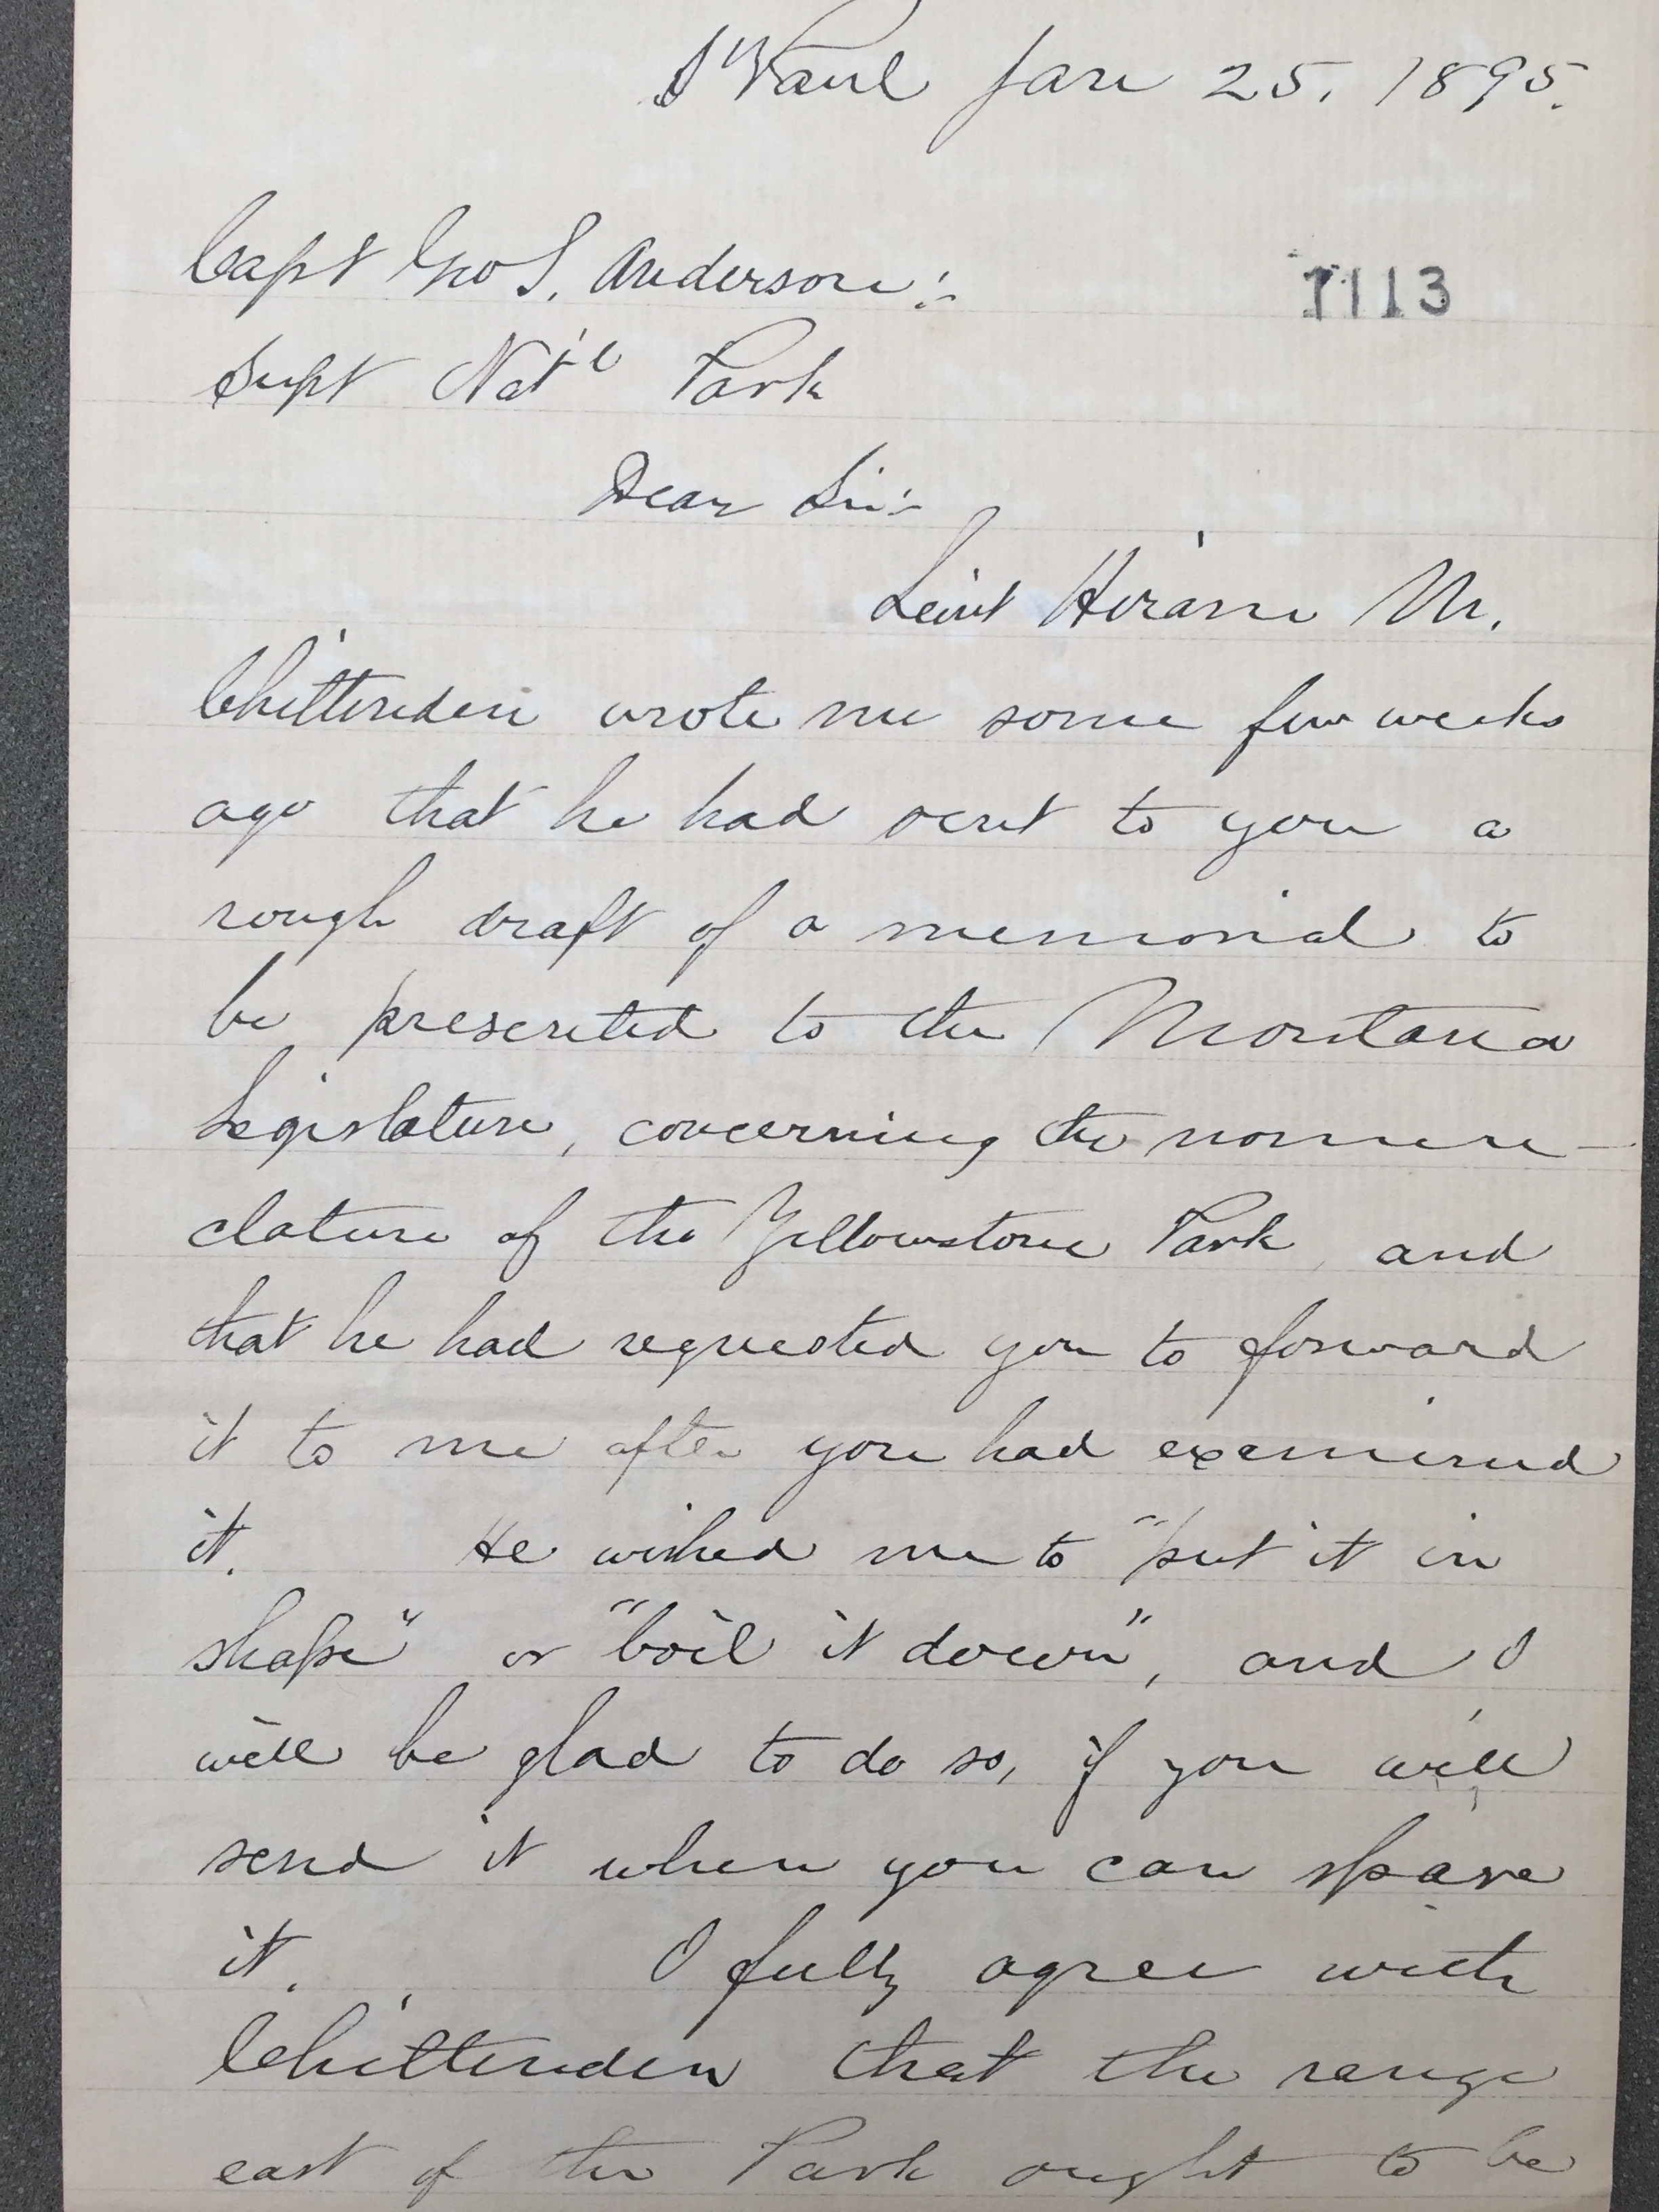 St Paul Jan 25, 1895.
Capt Geo. S. Anderson:-
1113
Supt Nat'l Park
Dear Sir:-
Lieut Hiram M.
Chittenden wrote me some few weeks
ago that he had sent to you a
rough draft of a memorial to
be presented to the Montana
Legislature, concerning the nomen-
clature of the Yellowstone Park, and
that he had requested you to forward
it to me after you had examined
it. He wished me to "put it in
shape" or "boil it down", and I
will be glad to do so, if you will
send it when you can spare
it. I fully agree with
Chittenden that the range
east of the Park ought to be